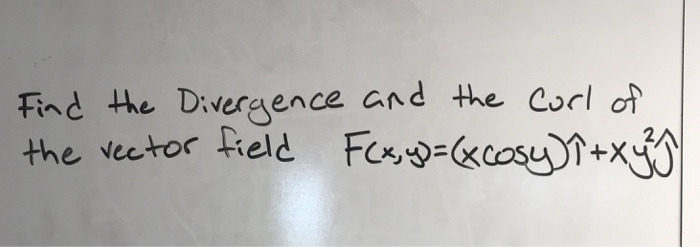 Find the Divergence and the Curl of
the vector field F(x,y)=(xcosy)î+xy²ĵ